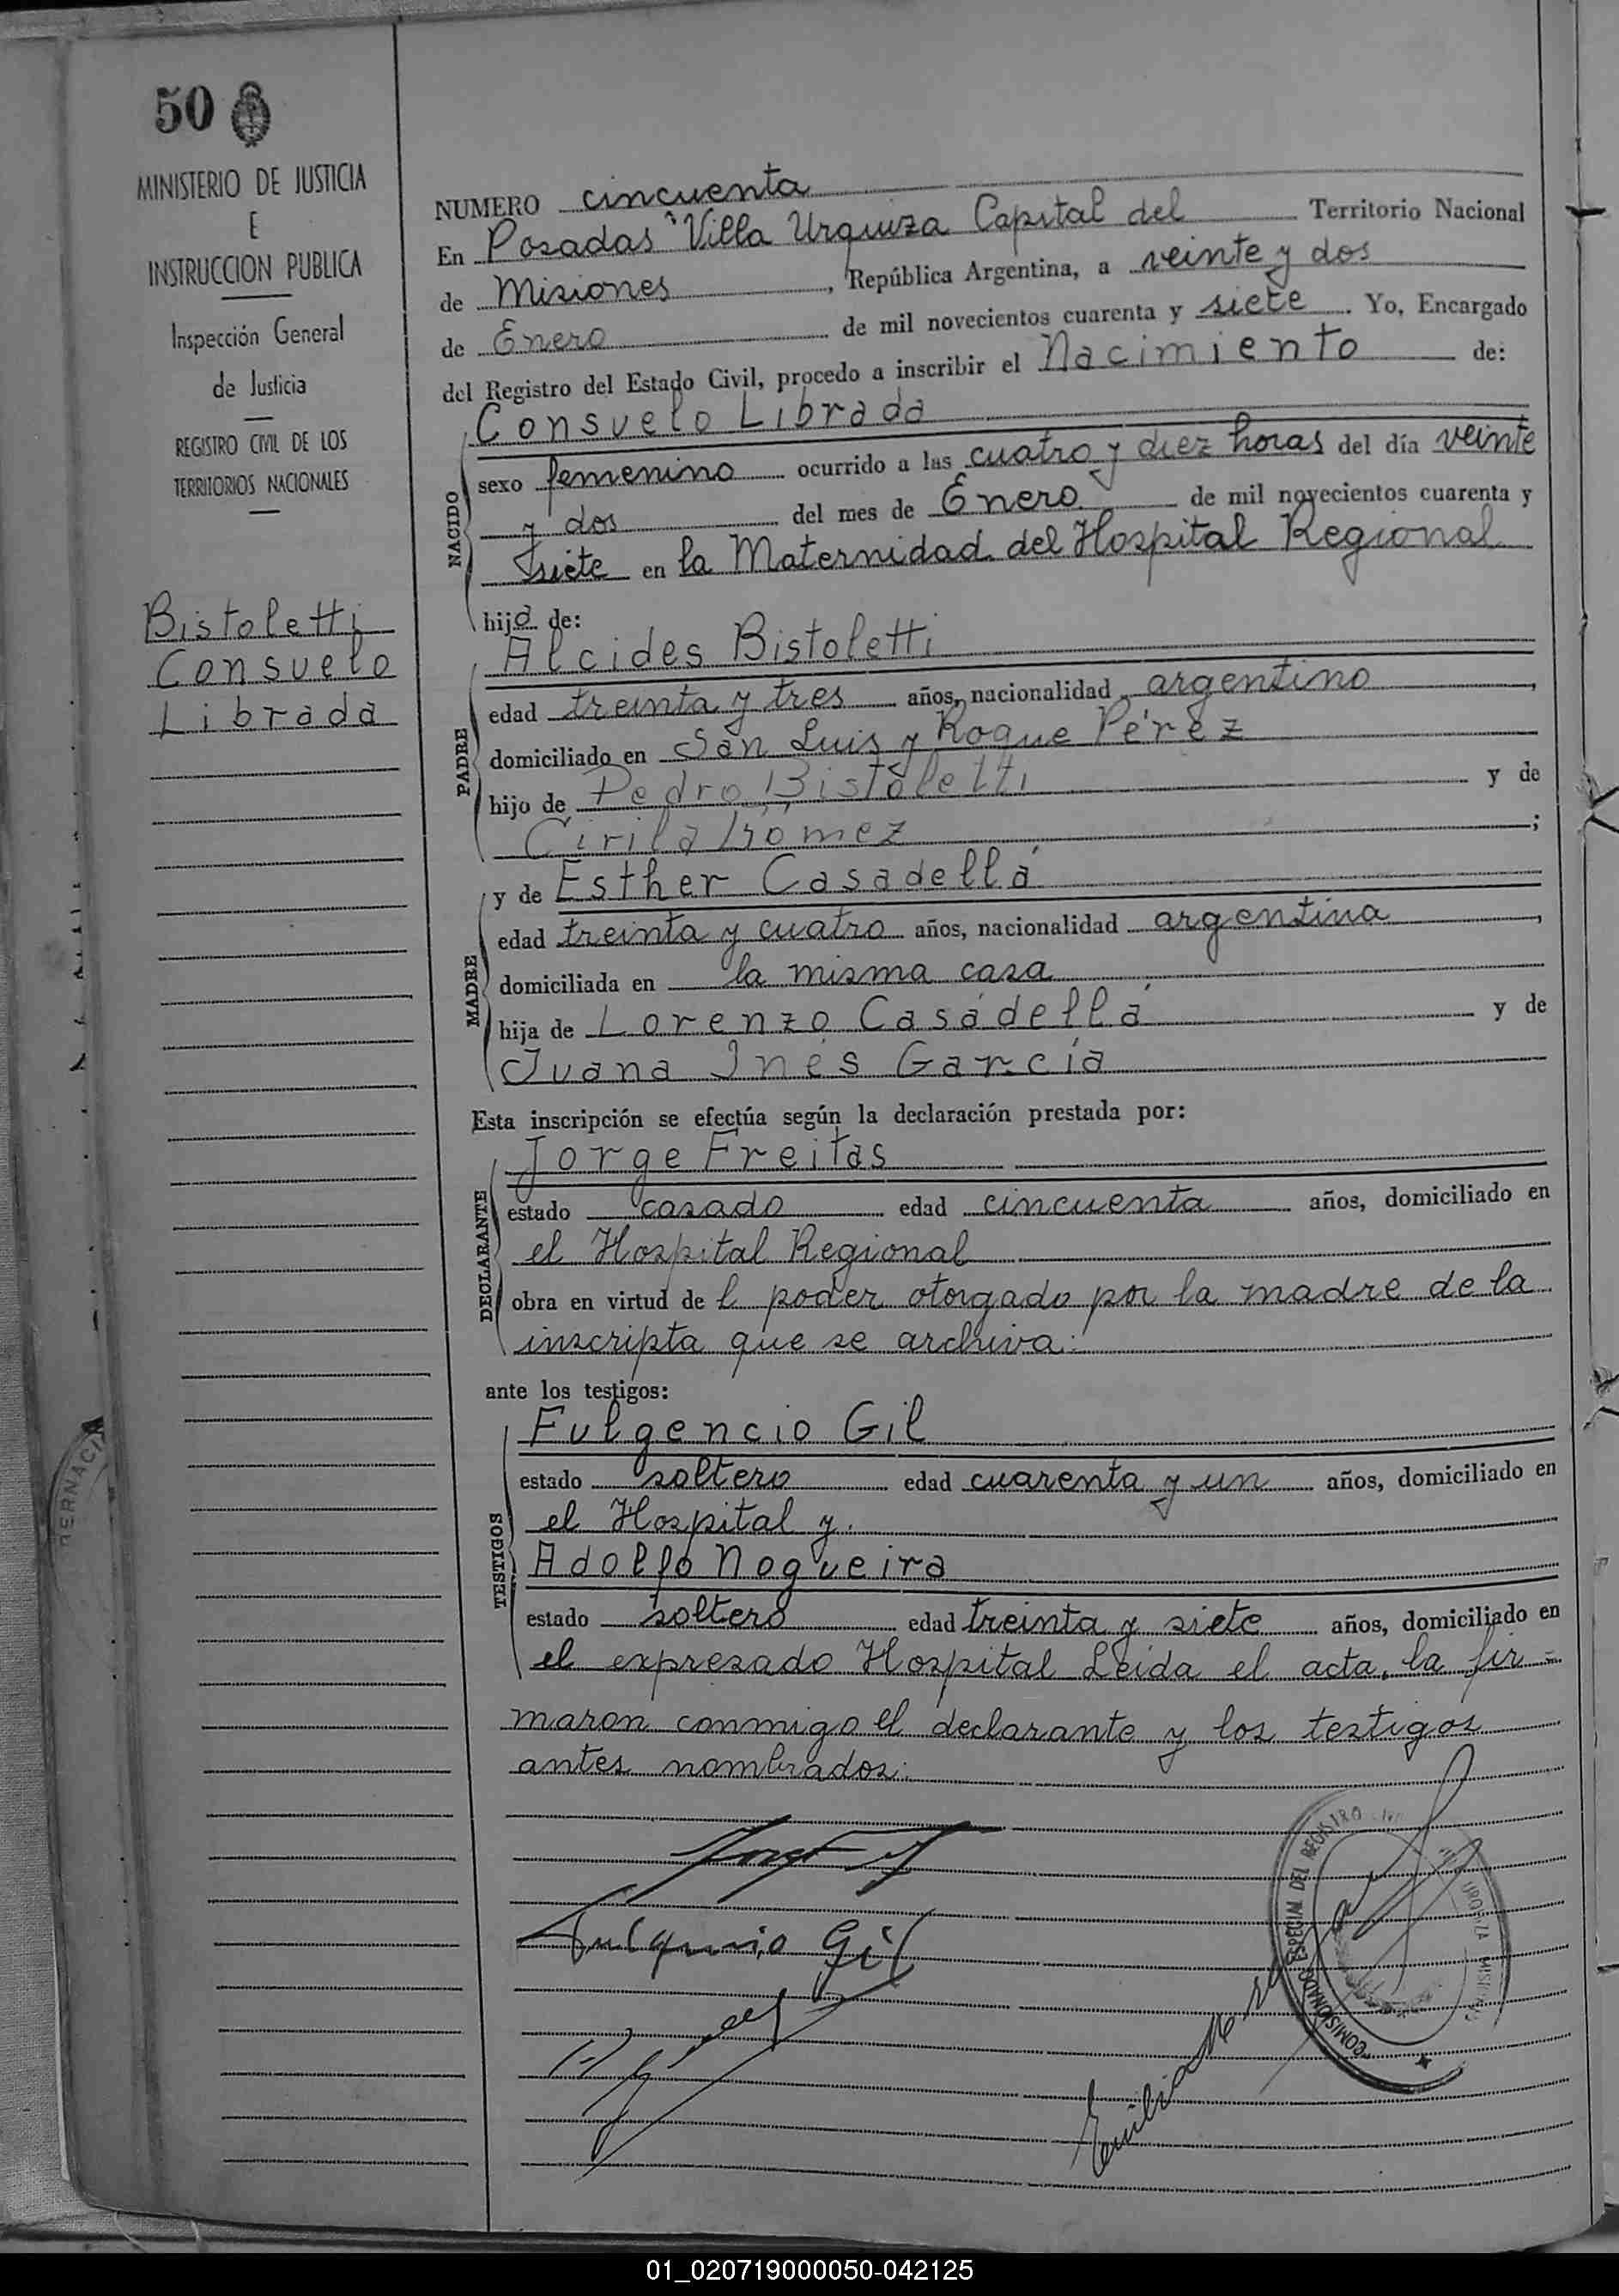 50
MINISTERIO DE JUSTICIA
E
INSTRUCCION PUBLICA
Inspección General
de Justicia
REGISTRO CIVIL DE LOS
TERRITORIOS NACIONALES
Bistoletti
Consuelo
Librada
NUMERO cincuenta
En Posadas "Villa Urquiza Capital del Territorio Nacional
de Misiones, República Argentina, a veinte y dos
de Enero de mil novecientos cuarenta y siete. Yo, Encargado
del Registro del Estado Civil, procedo a inscribir el Nacimiento de:
NACIDO
Consuelo Librada
sexo femenino ocurrido a las cuatro y diez horas del día veinte
y dos del mes de Enero de mil novecientos cuarenta y
siete en la Maternidad del Hospital Regional
hija de:
PADRE
Alcides Bistoletti
edad treinta y tres años, nacionalidad argentino,
domiciliado en San Luis y Roque Pérez
hijo de Pedro Bistoletti y de
Cirila Gómez;
MADRE
y de Esther Casadellá
edad treinta y cuatro años, nacionalidad argentina,
domiciliada en la misma casa
hija de Lorenzo Casadellá y de
Juana Inés García
Esta inscripción se efectúa según la declaración prestada por:
DECLARANTE
Jorge Freitas
estado casado edad cincuenta años, domiciliado en
el Hospital Regional
obra en virtud de l poder otorgado por la madre de la
inscripta que se archiva.
ante los testigos:
TESTIGOS
Fulgencio Gil
estado soltero edad cuarenta y un años, domiciliado en
el Hospital y.
Adolfo Nogueira
estado soltero edad treinta y siete años, domiciliado en
el expresado Hospital Leida el acta, la fir-
maron conmigo el declarante y los testigos
antes nombrados.
Fulgencio Gil
COMISIONADO ESPECIAL DEL REGISTRO
01_020719000050-042125